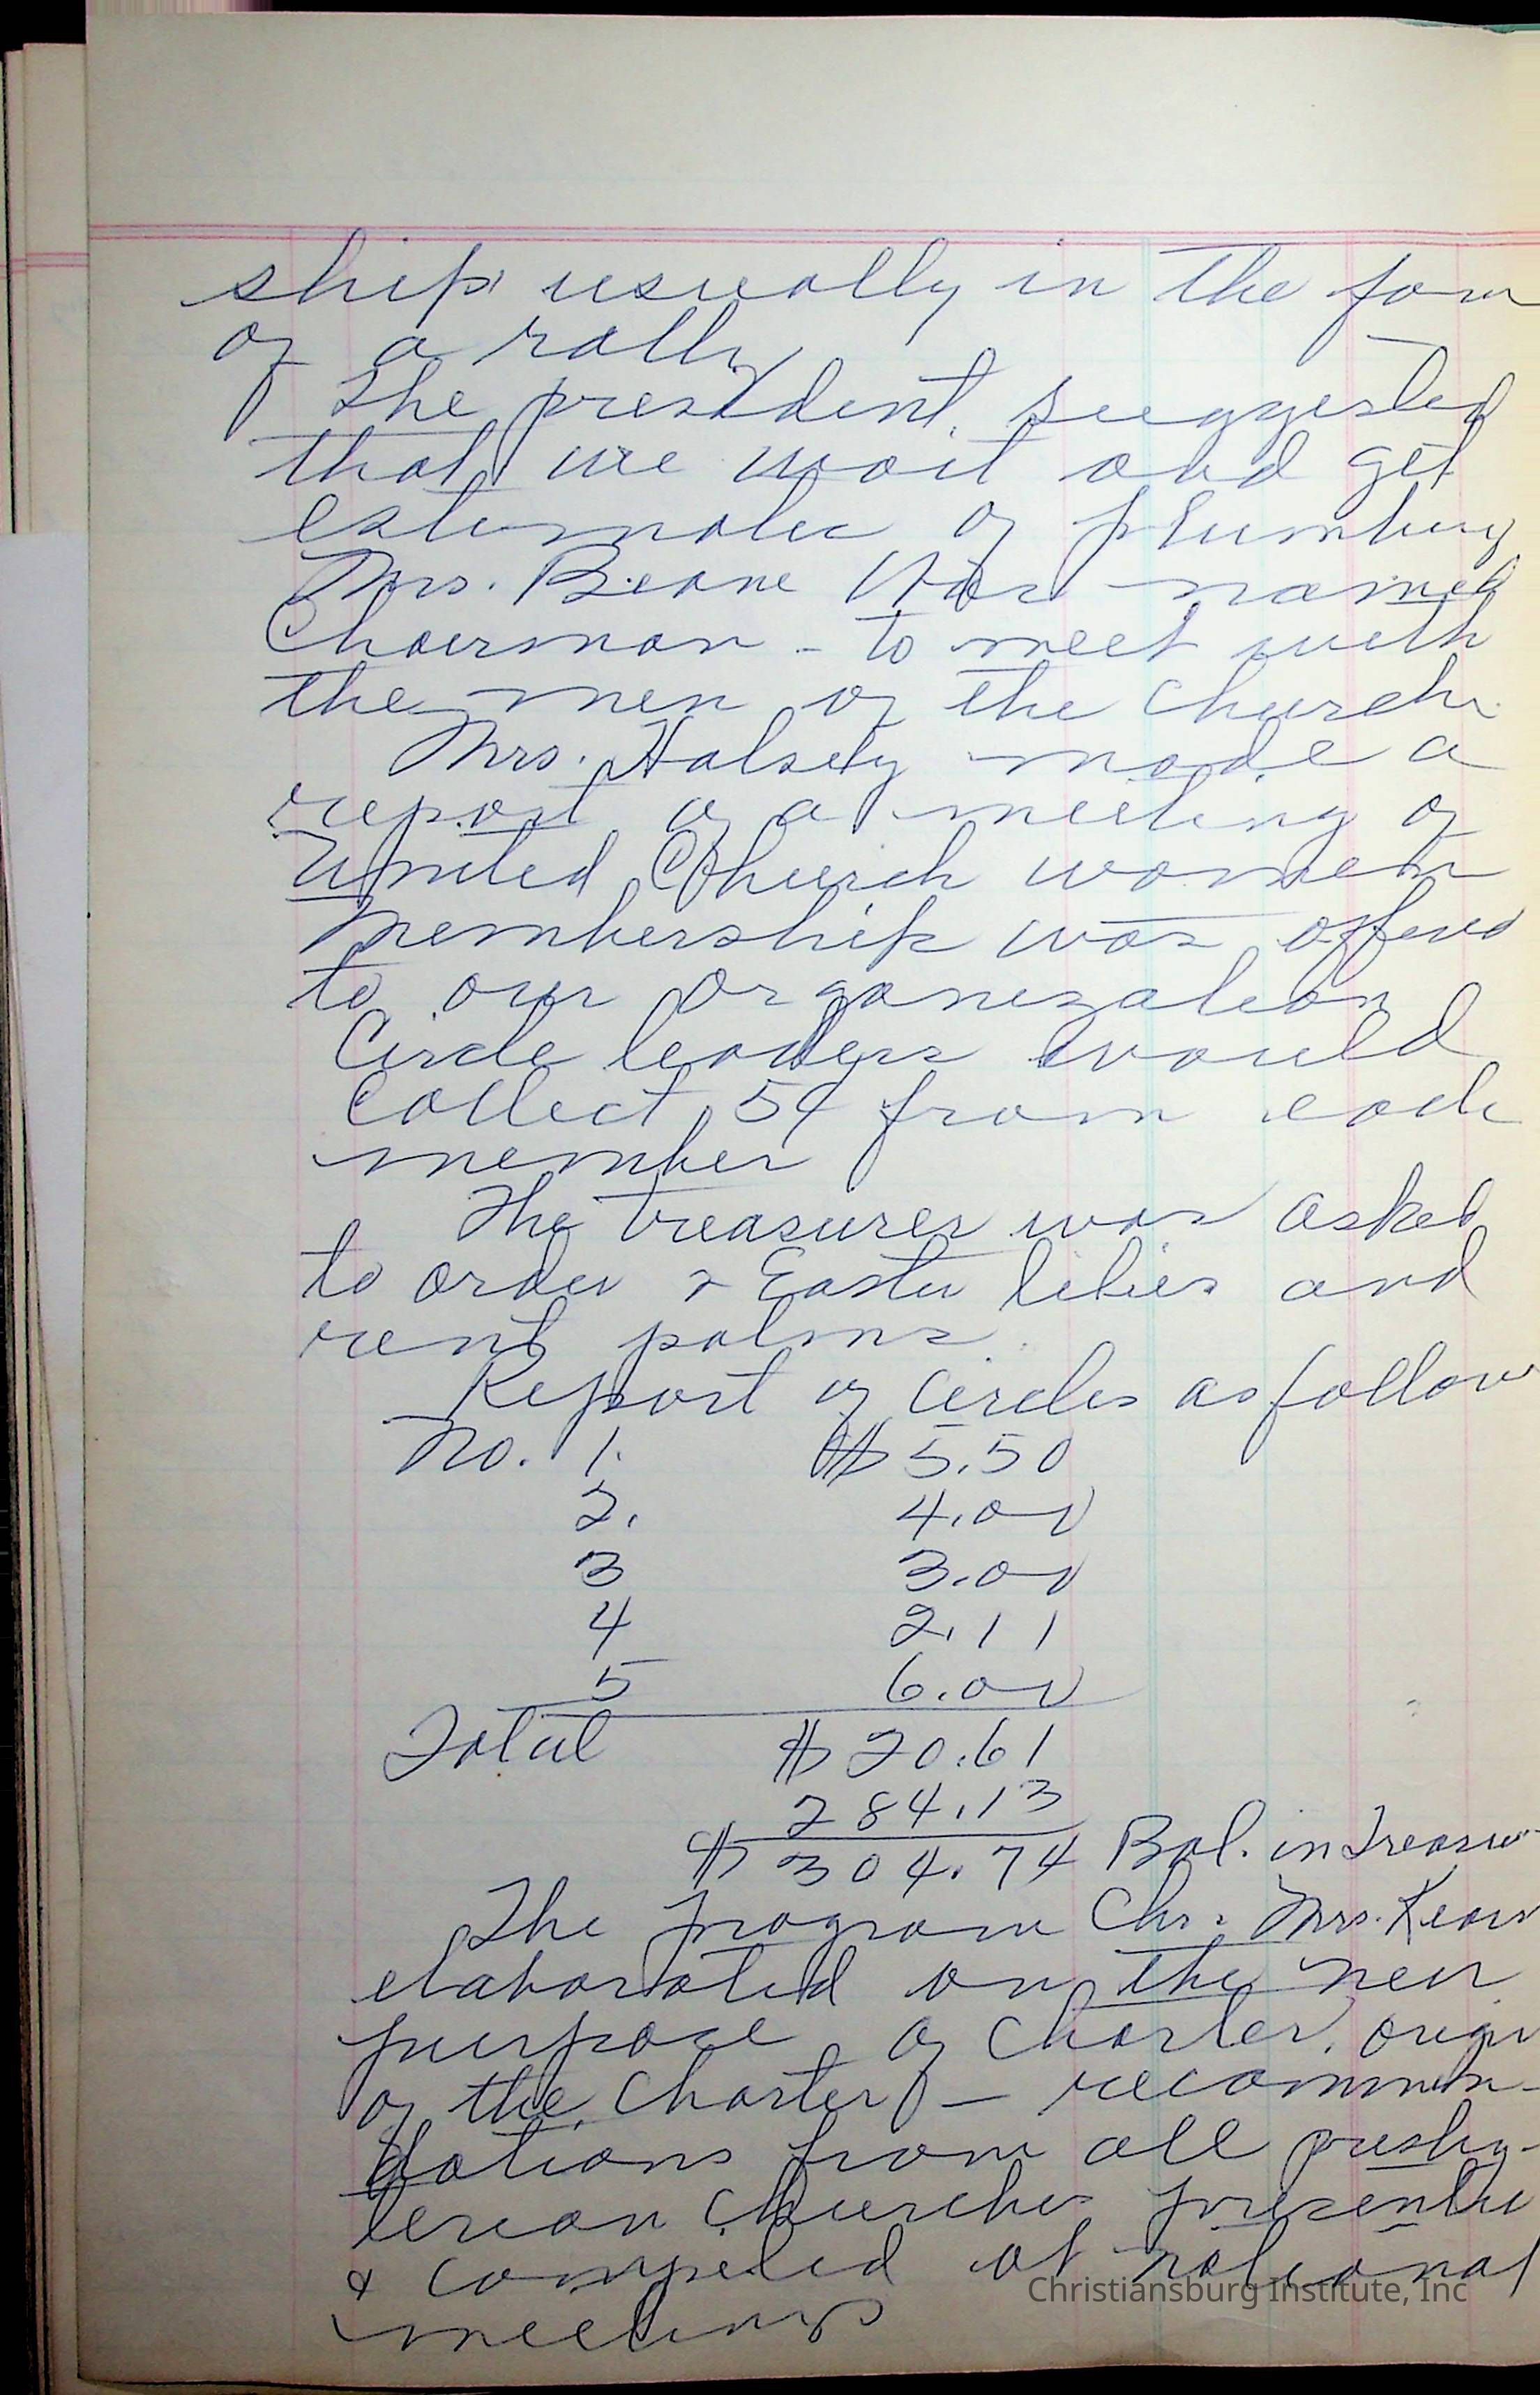 ship usually in the form
of a rally
The president suggested
that we wait and get
estimates of plumbing
Mrs. Beane was named
Chairman - to meet with
the men of the church.
Mrs. Halsey made a
report of a meeting of
United Church women
membership was offered
to our organization
Circle leaders would
collect 5¢ from each
member
The treasurer was asked
to order Easter lilies and
rent palms.
Report of Circles as follow
No. 1. $5.50
2. 4.00
3 3.00
4 2.11
5 6.00
Total $20.61
284.13
$304.74 Bal. in Treasur
The program Chr. Mrs.
elaborated on the new
purpose of Charter, origin
of the Charter — recommen-
dations from all presby-
terian Churches presented
& compiled at national
meetings
Christiansburg Institute, Inc